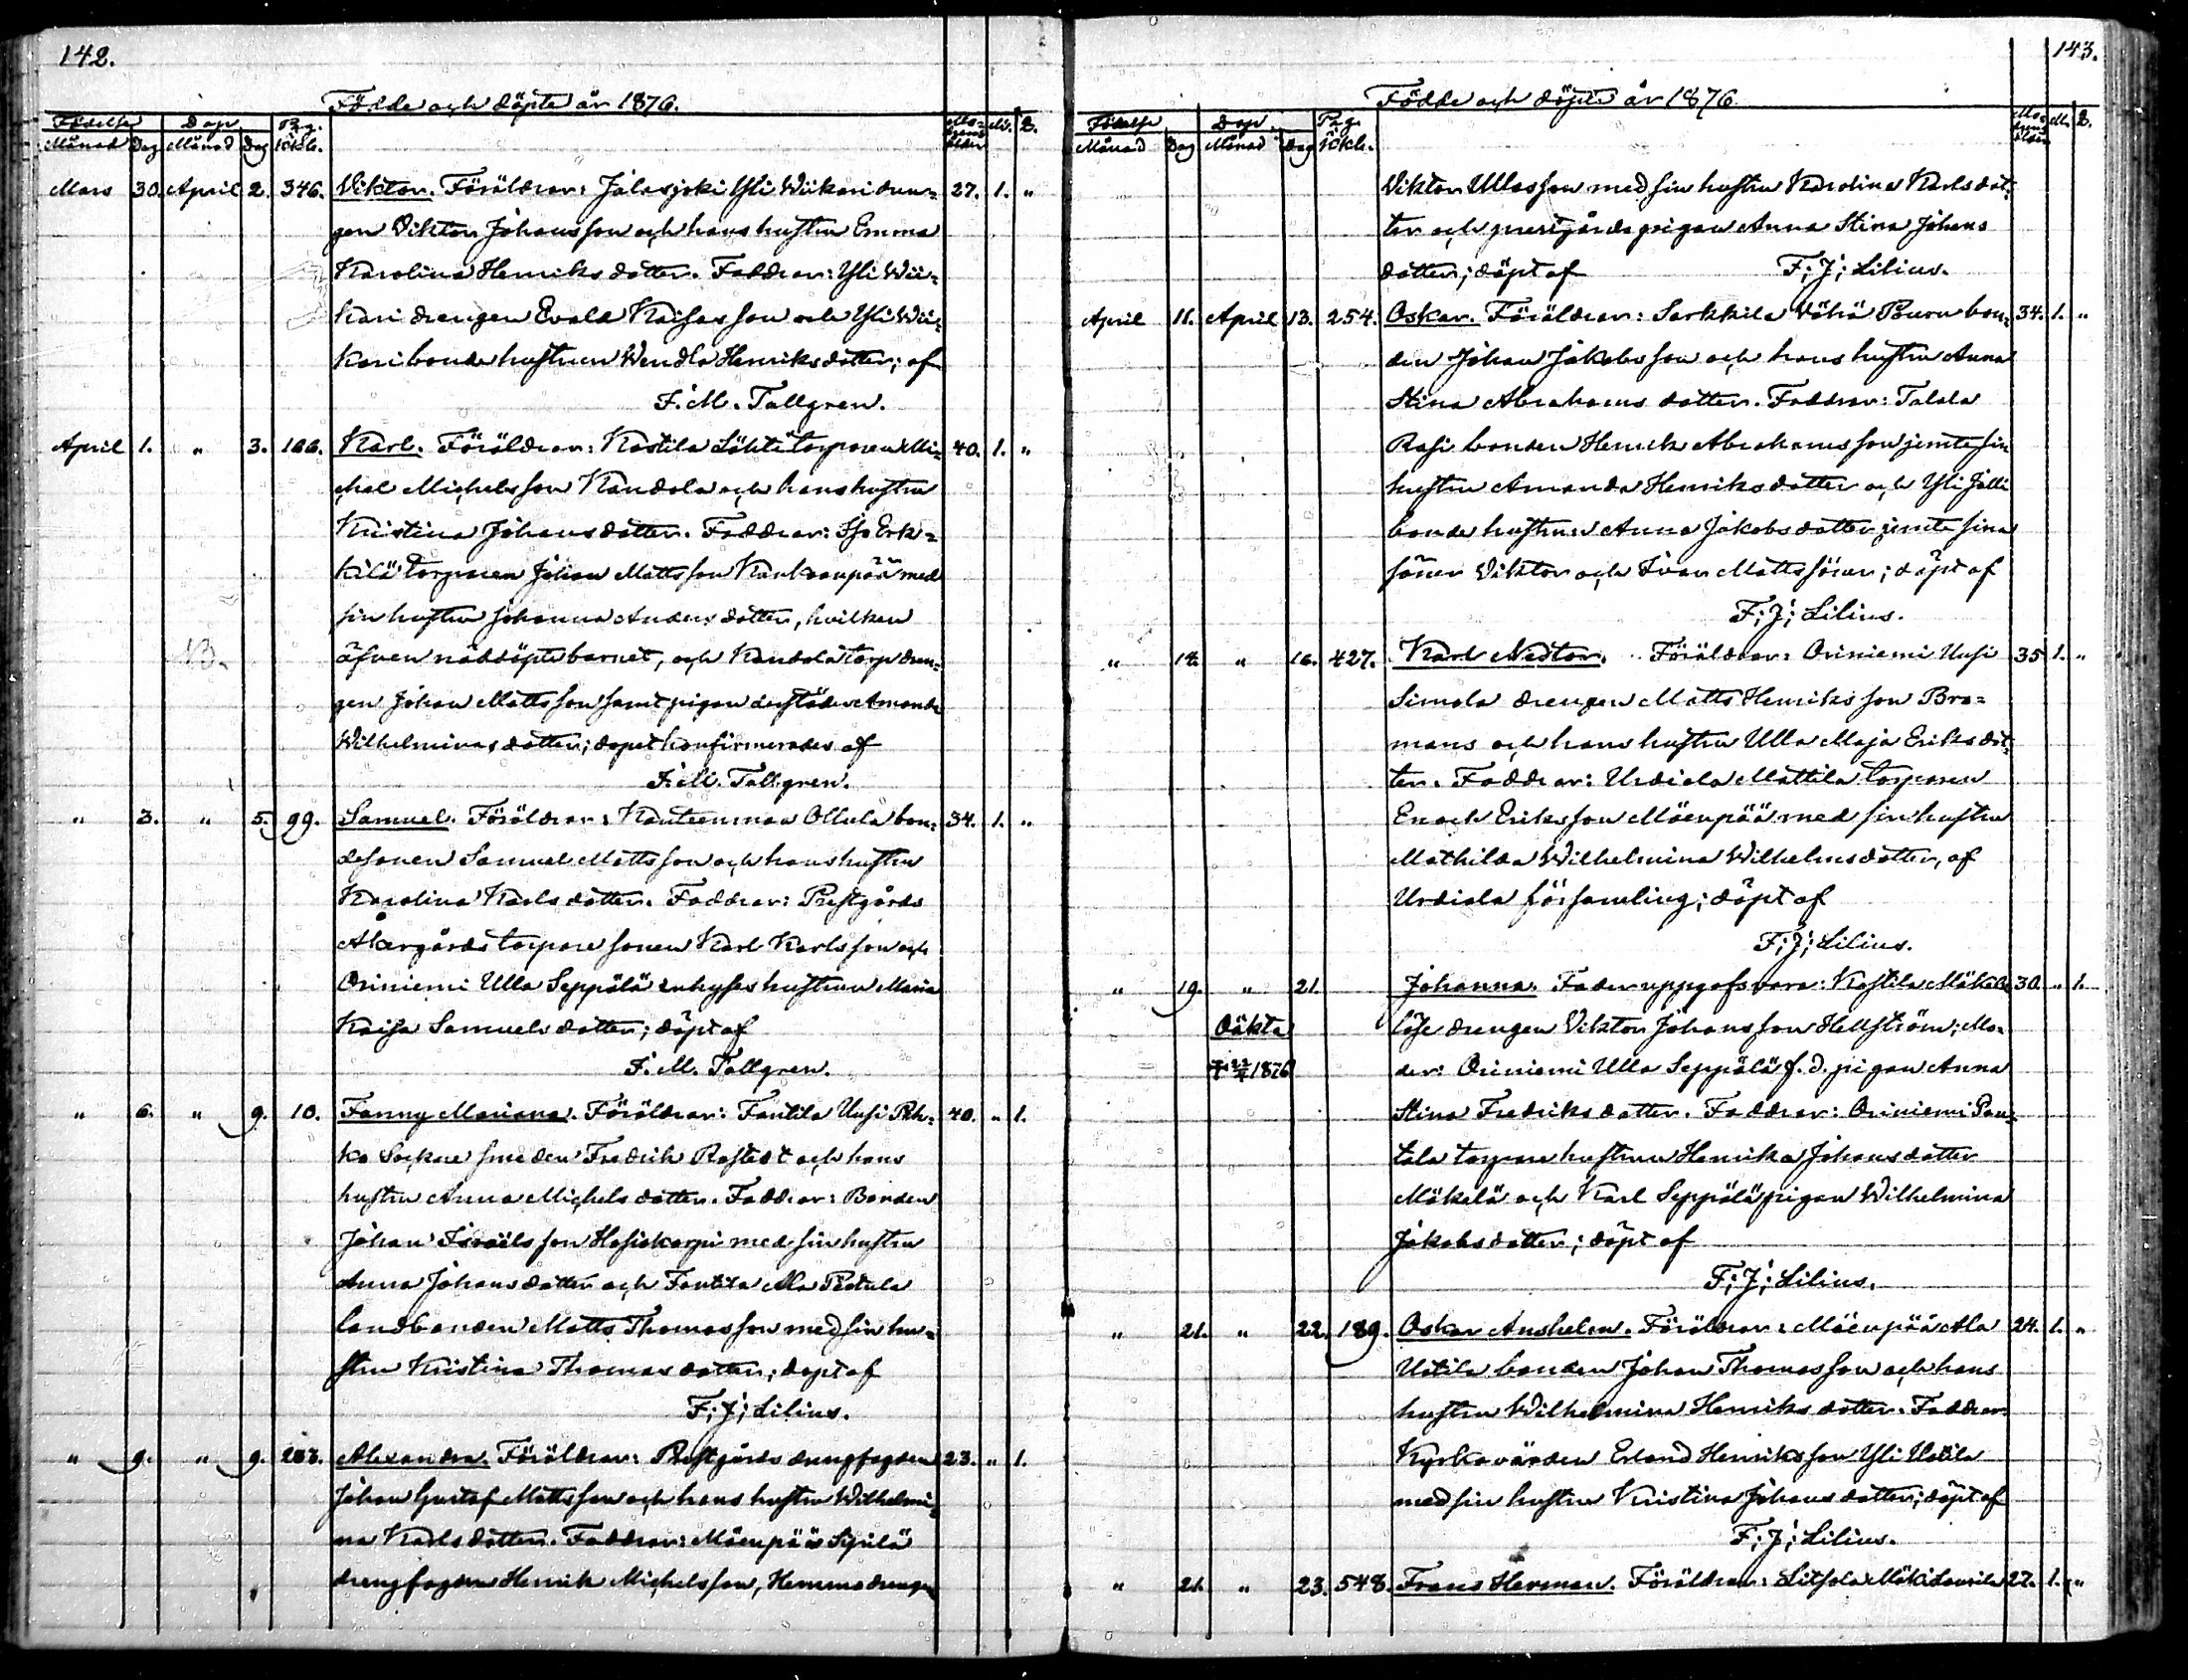 142.
Födde och döpte år 1876.
Födelse Dop Pag. Moderns ålder M. Q.
Månad Dag Månad Dag i Kkb.
Mars 30. April 2. 346. Viktor. Föräldrar: Jalasjoki Yli Wiikari drän= 27. 1. "
gen Viktor Johansson och hans hustru Emma
Karolina Henriksdotter. Faddrar: Yli Wii=
kari drengen Evald Kaisasson och Yli Wii=
kari bonde hustrun Wendla Henriksdotter; af
F. M. Tallgren.
April 1. " 3. 166. Karl. Föräldrar: Kostila torparen Mi= 40. 1. "
chel Michelsson Kandola och hans hustru
Kristina Johansdotter. Faddrar: Iso Erk=
kilä torparen Johan Mattsson Kankaanpää med
sin hustru Johanna Andersdotter, hvilken
NB. äfven nöddöpte barnet, och Kandola torp dren=
gen Johan Mattsson samt pigan derstädes Amanda
Wilhelminasdotter; dopet konfirmerades af
F. M. Tallgren.
" 3. " 5. 99. Samuel. Föräldrar: Kantreenmaa Ollula bon= 34. 1. "
desonen Samuel Mattsson och hans hustru
Karolina Karlsdotter. Faddrar: Prestgårds
Åkergårds torpare sonen Karl Karlsson och
Oriniemi Ulla Seppälä inhyses hustrun Maria
Kaisa Samuelsdotter; döpt af
F. M. Tallgren.
" 6. " 9. 10. Fanny Mariana. Föräldrar: Fantila Uusi Peh= 40. " 1.
ko Socknesmeden Fredrik Rostedt och hans
hustru Anna Michelsdotter. Faddrar: Bonden
Johan Israelsson Hosiokorpi med sin hustru
Anna Johansdotter och Fantila Ala Pietula
landbonden Matts Thomasson med sin hu=
stru Kristina Thomasdotter; döpt af
F; J; Lilius.
" 9. " 9. 283. Alexandra. Föräldrar: Prestgårds drengfogden 23. " 1.
Johan Gustaf Mattsson och hans hustru Wilhelmi=
na Karlsdotter. Faddrar: Mäenpää Sipilä
drengfogden Henrik Michelsson, Hemmadrengen
143.
Födde och döpte år 1876.
Födelse Dop Pag. Moderns ålder M. Q.
Månad Dag Månad Dag i Kkb.
Viktor Ullasson med sin hustru Karolina Karlsdot=
ter och prestgårds pigan Anna Stina Johans
dotter; döpt af F; J; Lilius.
April 11. April 13. 254. Oskar. Föräldrar: Sarkkila Vähä Pouru bon= 34. 1. "
den Johan Jakobsson och hans hustru Anna
Stina Abrahamsdotter. Faddrar: Talala
Rasi bonden Henrik Abrahamsson jemte sin
hustru Amanda Henriksdotter och Yli Jalli
bonde hustrun Anna Jakobsdotter jemte sina
söner Viktor och Ivar Mattssöner; döpt af
F; J; Lilius.
" 14. " 16. 427. Karl Nestor. Föräldrar: Oriniemi Uusi 35 1. "
Simola drengen Matts Henriksson Bro=
mans och hans hustru Ulla Maja Eriksdot=
ter. Faddrar: Urdiala Mattila torparen
Enoch Eriksson Mäenpää med sin hustru
Mathilda Wilhelmina Wilhelmsdotter, af
Urdiala församling; döpt af
F; J; Lilius.
" 19. " 21. Johanna. Fader uppgafs vara: Kostila Mäkelä 30. " 1.
Oäkta löse drengen Viktor Johansson Hellström; Mo=
† 22/4 1876 der: Oriniemi Ulla Seppälä f. d. pigan Anna
Stina Fredriksdotter. Faddrar: Oriniemi Pen=
tala torpare hustrun Henrika Johansdotter
Mäkelä och Karl Seppälä pigan Wilhelmina
Jakobsdotter; döpt af
F; J; Lilius.
" 21. " 22. 189. Oskar Anshelm. Föräldrar: Mäenpää Ala 24. 1. "
Uotila bonden Johan Thomasson och hans
hustru Wilhelmina Henriksdotter. Faddrar:
Kyrkovärden Erland Henriksson Yli Uotila
med sin hustru Kristina Johansdotter; döpt af
F; J; Lilius.
" 21. " 23. 548. Frans Herman. Föräldrar: Sitsola Mäki Laurila 27. 1. "